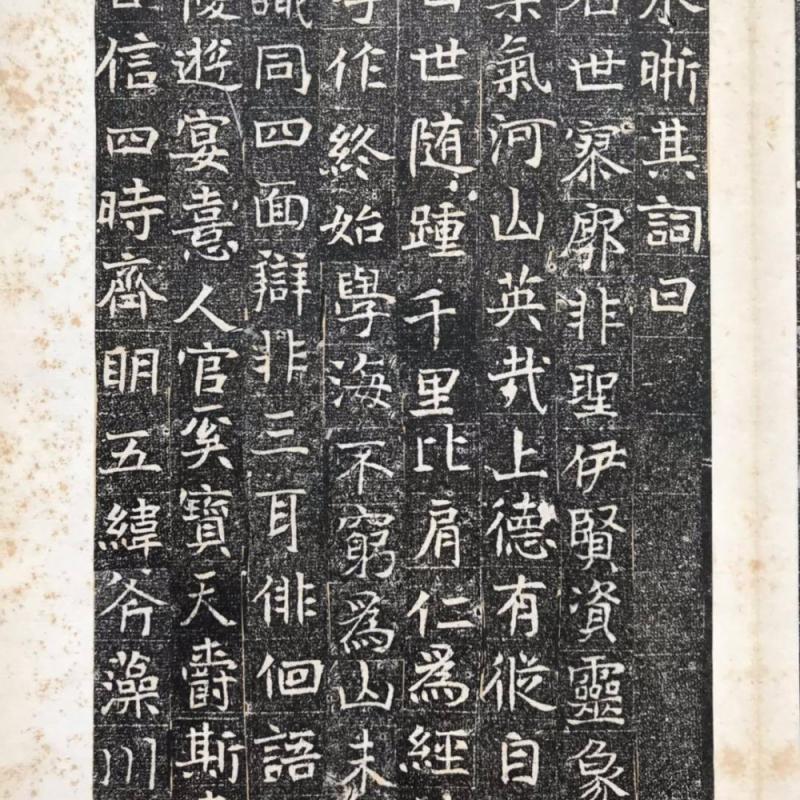 晰其詞曰
世寥廓非聖伊賢資靈象
氣河山英哉上德有從自
世随踵千里比肩仁爲經
作終始學海不窮爲山未
識同四面辯非三耳俳佪語
陵遊宴憙人官奚寶天爵斯
信四時齊明五緯斧藻川